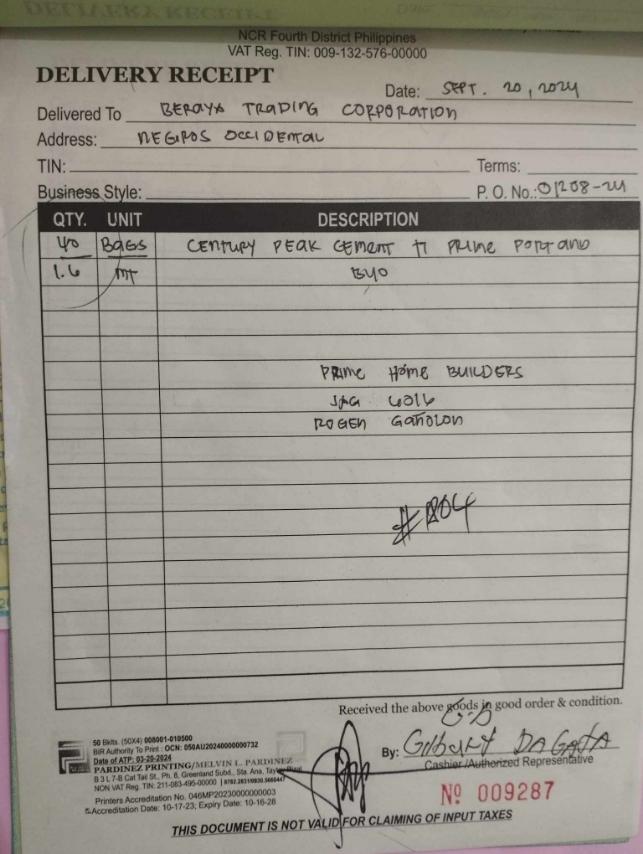 NCR Fourth District Philippines
VAT Reg. TIN: 009-132-576-00000
DELIVERY RECEIPT
Date: SEPT. 20, 2024
Delivered To BERAYA TRADING CORPORATION
Address: NEGROS OCCIDENTAL
TIN: Terms:
Business Style: P. O. No.: 01208-24
QTY. UNIT DESCRIPTION
40 BAGS CENTURY PEAK CEMENT PRIME
1.6 MT
PRIME HOME BUILDERS
6016
ROGEN GAÑOLON
#1804
Received the above goods in good order & condition.
By: Gilbert DAGATA
Cashier /Authorized Representative
50 Bklts. (50X4) 008001-010500
BIR Authority To Print : OCN: 050AU20240000000732
Date of ATP: 03-20-2024
PARDINEZ PRINTING/MELVIN L. PARDINEZ
B 3 L 7-B Cat Tail St., Ph. 6, Greenland Subd., Sta. Ana,
NON VAT Reg. TIN: 211-083-495-00000
Printers Accreditation No. 046MP20230000000003
Accreditation Date: 10-17-23; Expiry Date: 10-16-28
Nº 009287
THIS DOCUMENT IS NOT VALID FOR CLAIMING OF INPUT TAXES